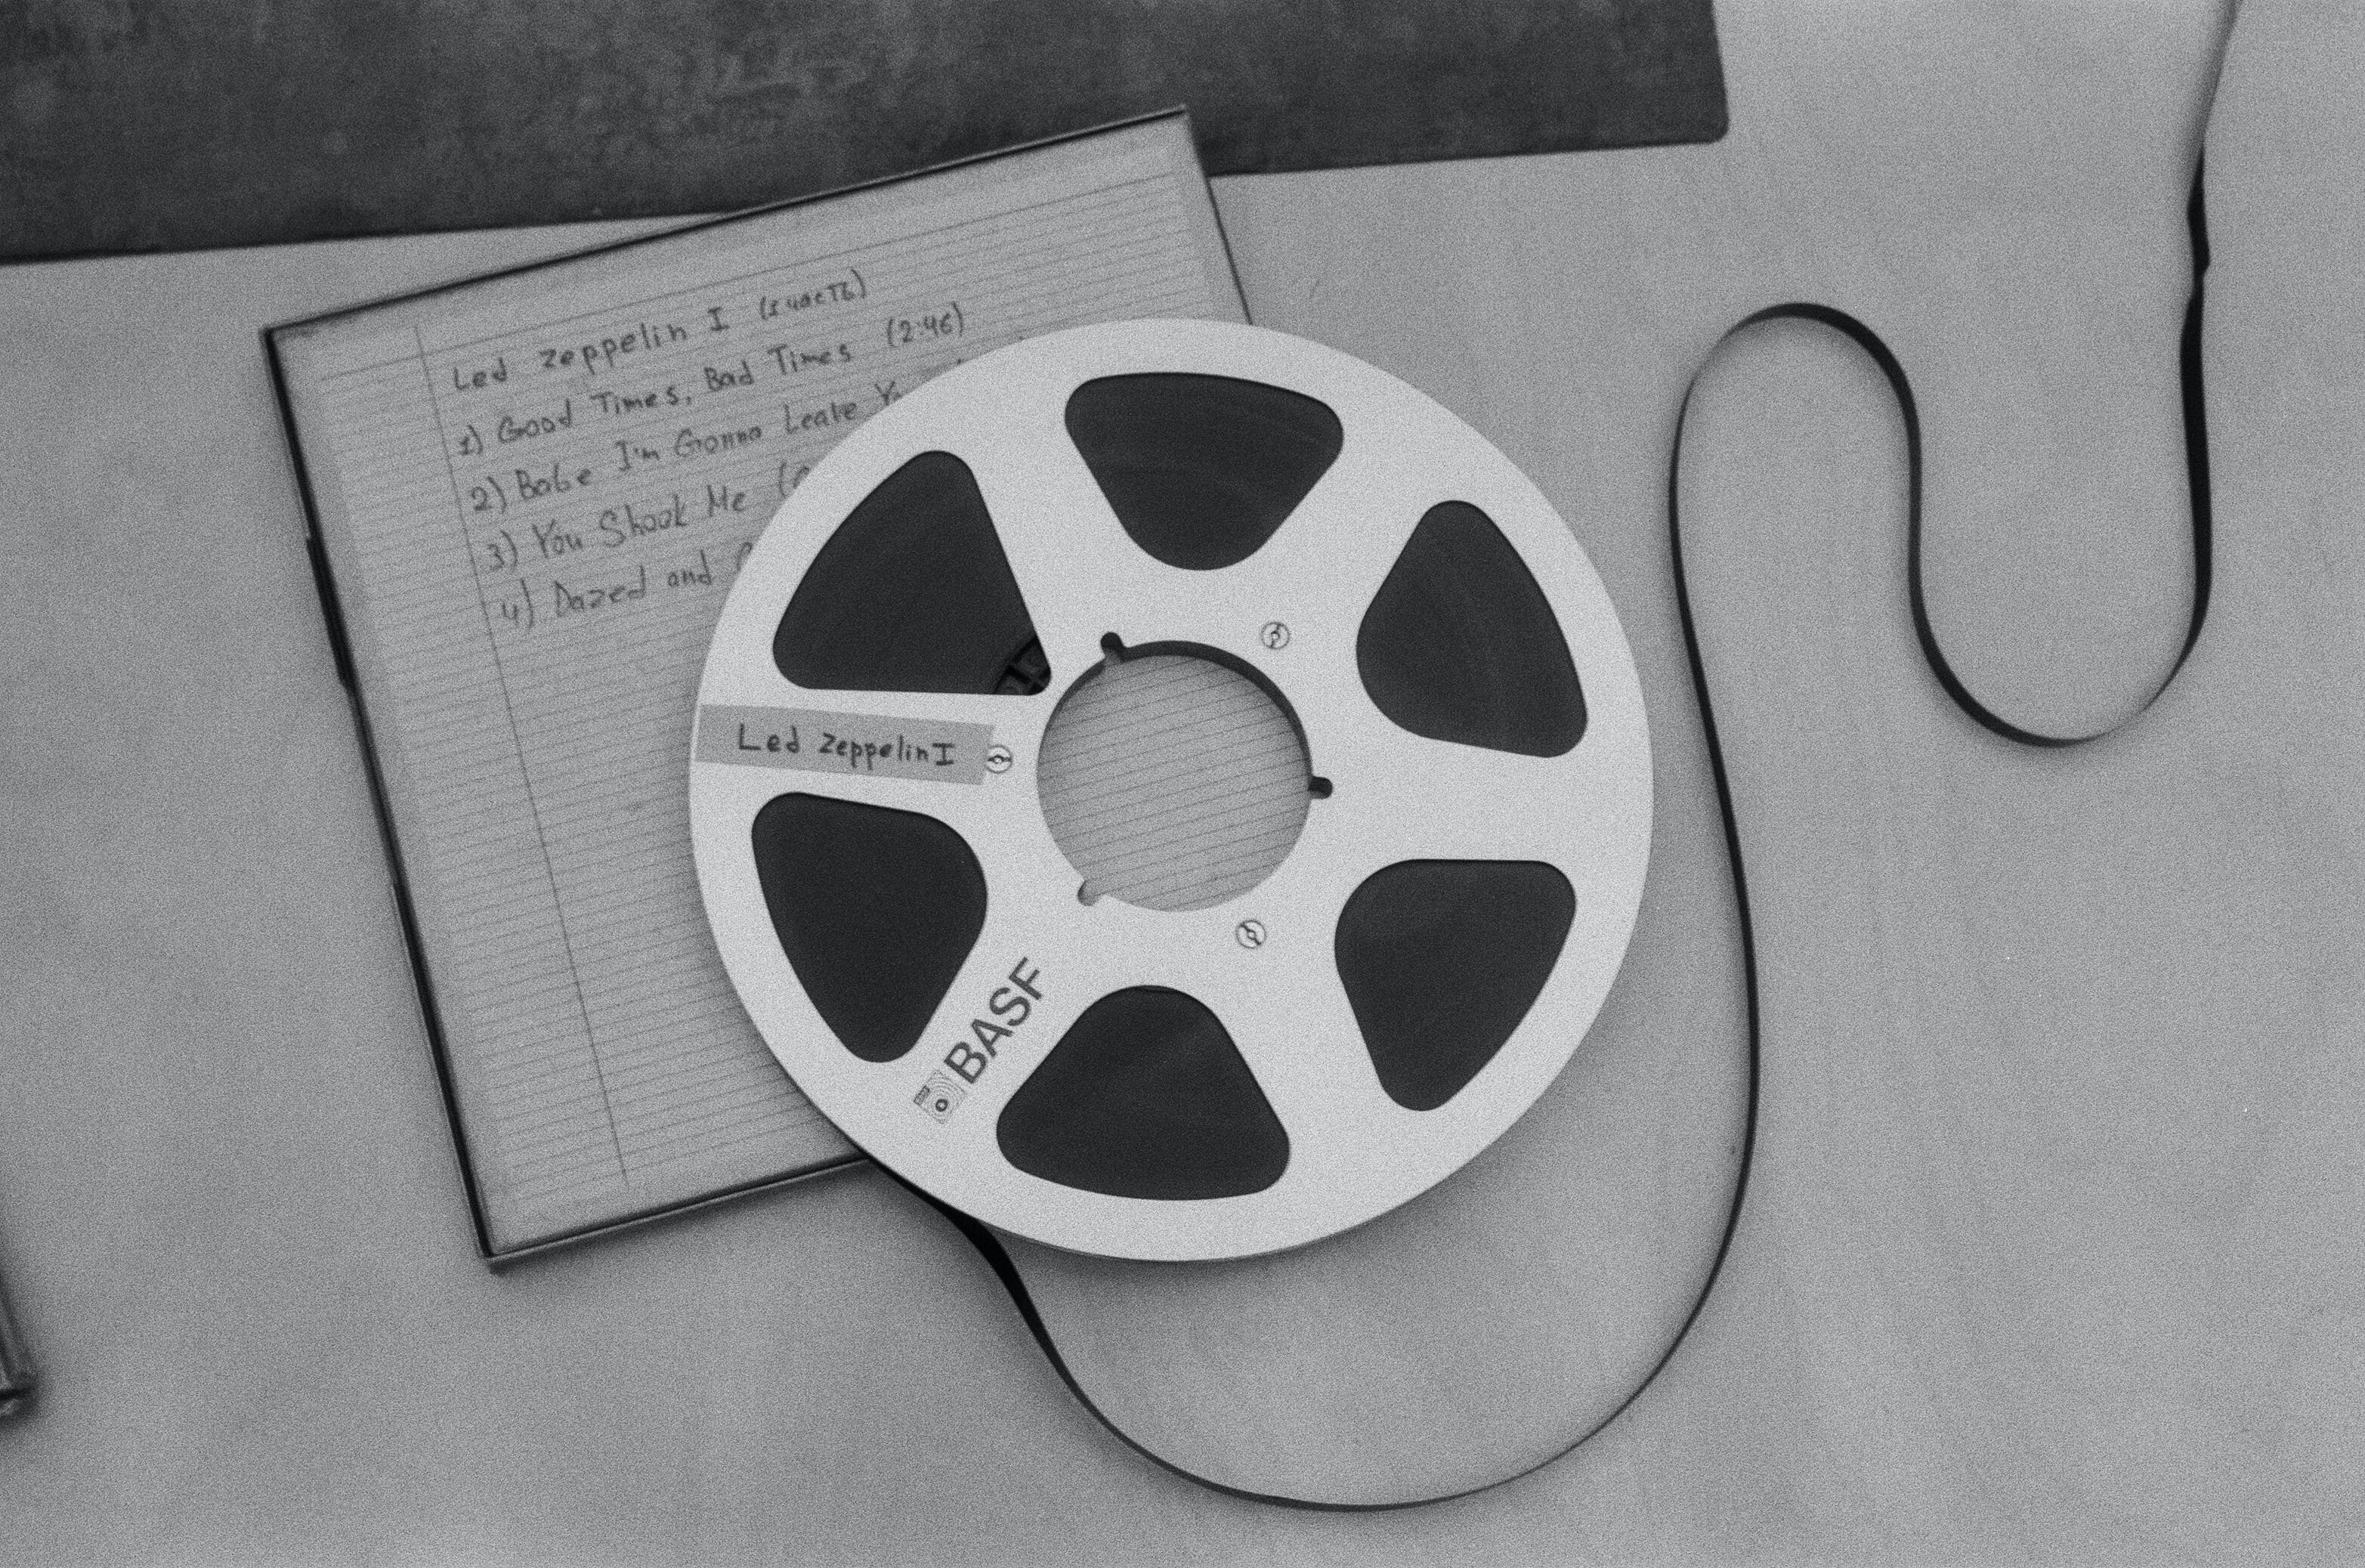 Led Zeppelin I (I часть)
1) Good Times, Bad Times (2:46)
2) Babe I'm Gonna Leave
3) You Shook Me
4) Dazed and
Led Zeppelin I
BASF